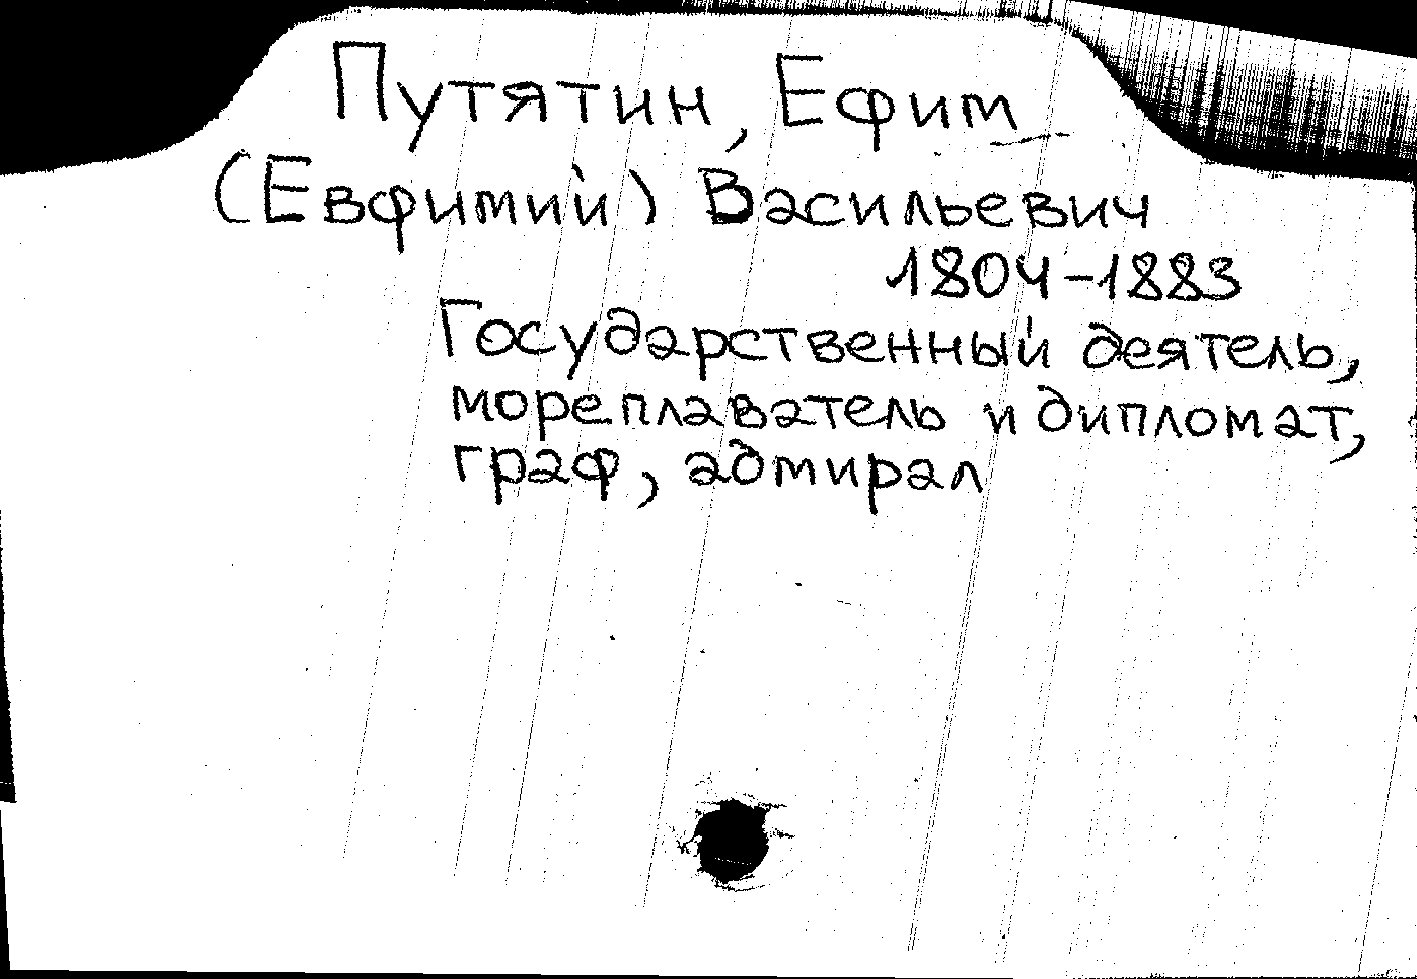 Путятин, Ефим
(Евфимий) Васильевич
1804-1883
Государственный деятель,
мореплаватель и дипломат,
граф, адмирал